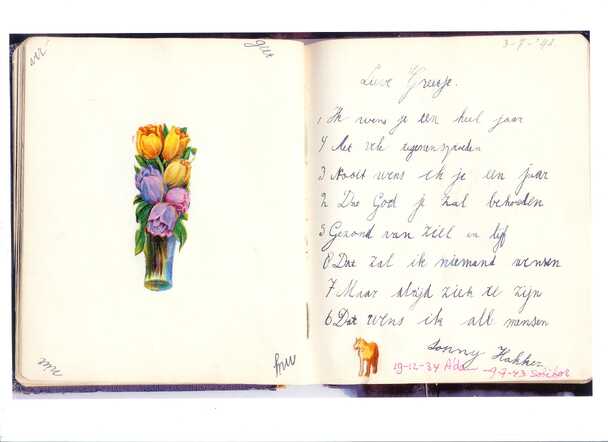 ver
geet
mij
3-7-'42.
Lieve Greetje.
1 Ik wens je een heel jaar
4 Met vele tegenspoeden
3 Nooit wens ik je een jaar
2 Dat God je zal behoeden
5 Gezond van ziel en lijf
8 Dat zal ik niemand wensen
7 Maar altijd ziek te zijn
6 Dat wens ik all mensen
Sonny Hakker
19-12-34 A'dam -9-7-43 Sobibor